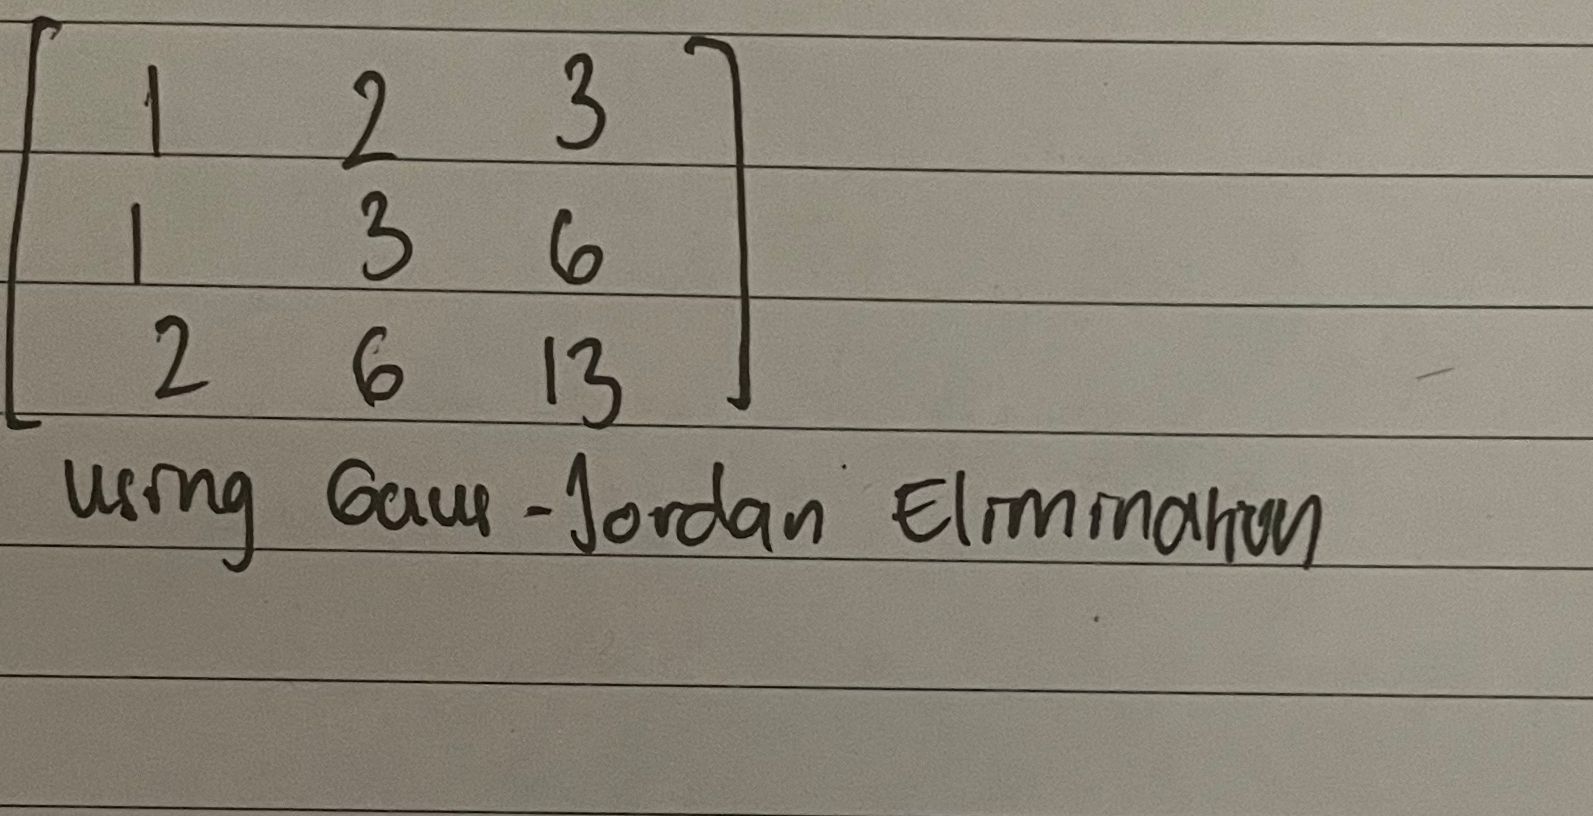 1 2 3
1 3 6
2 6 13
using Gauss-Jordan Elimination